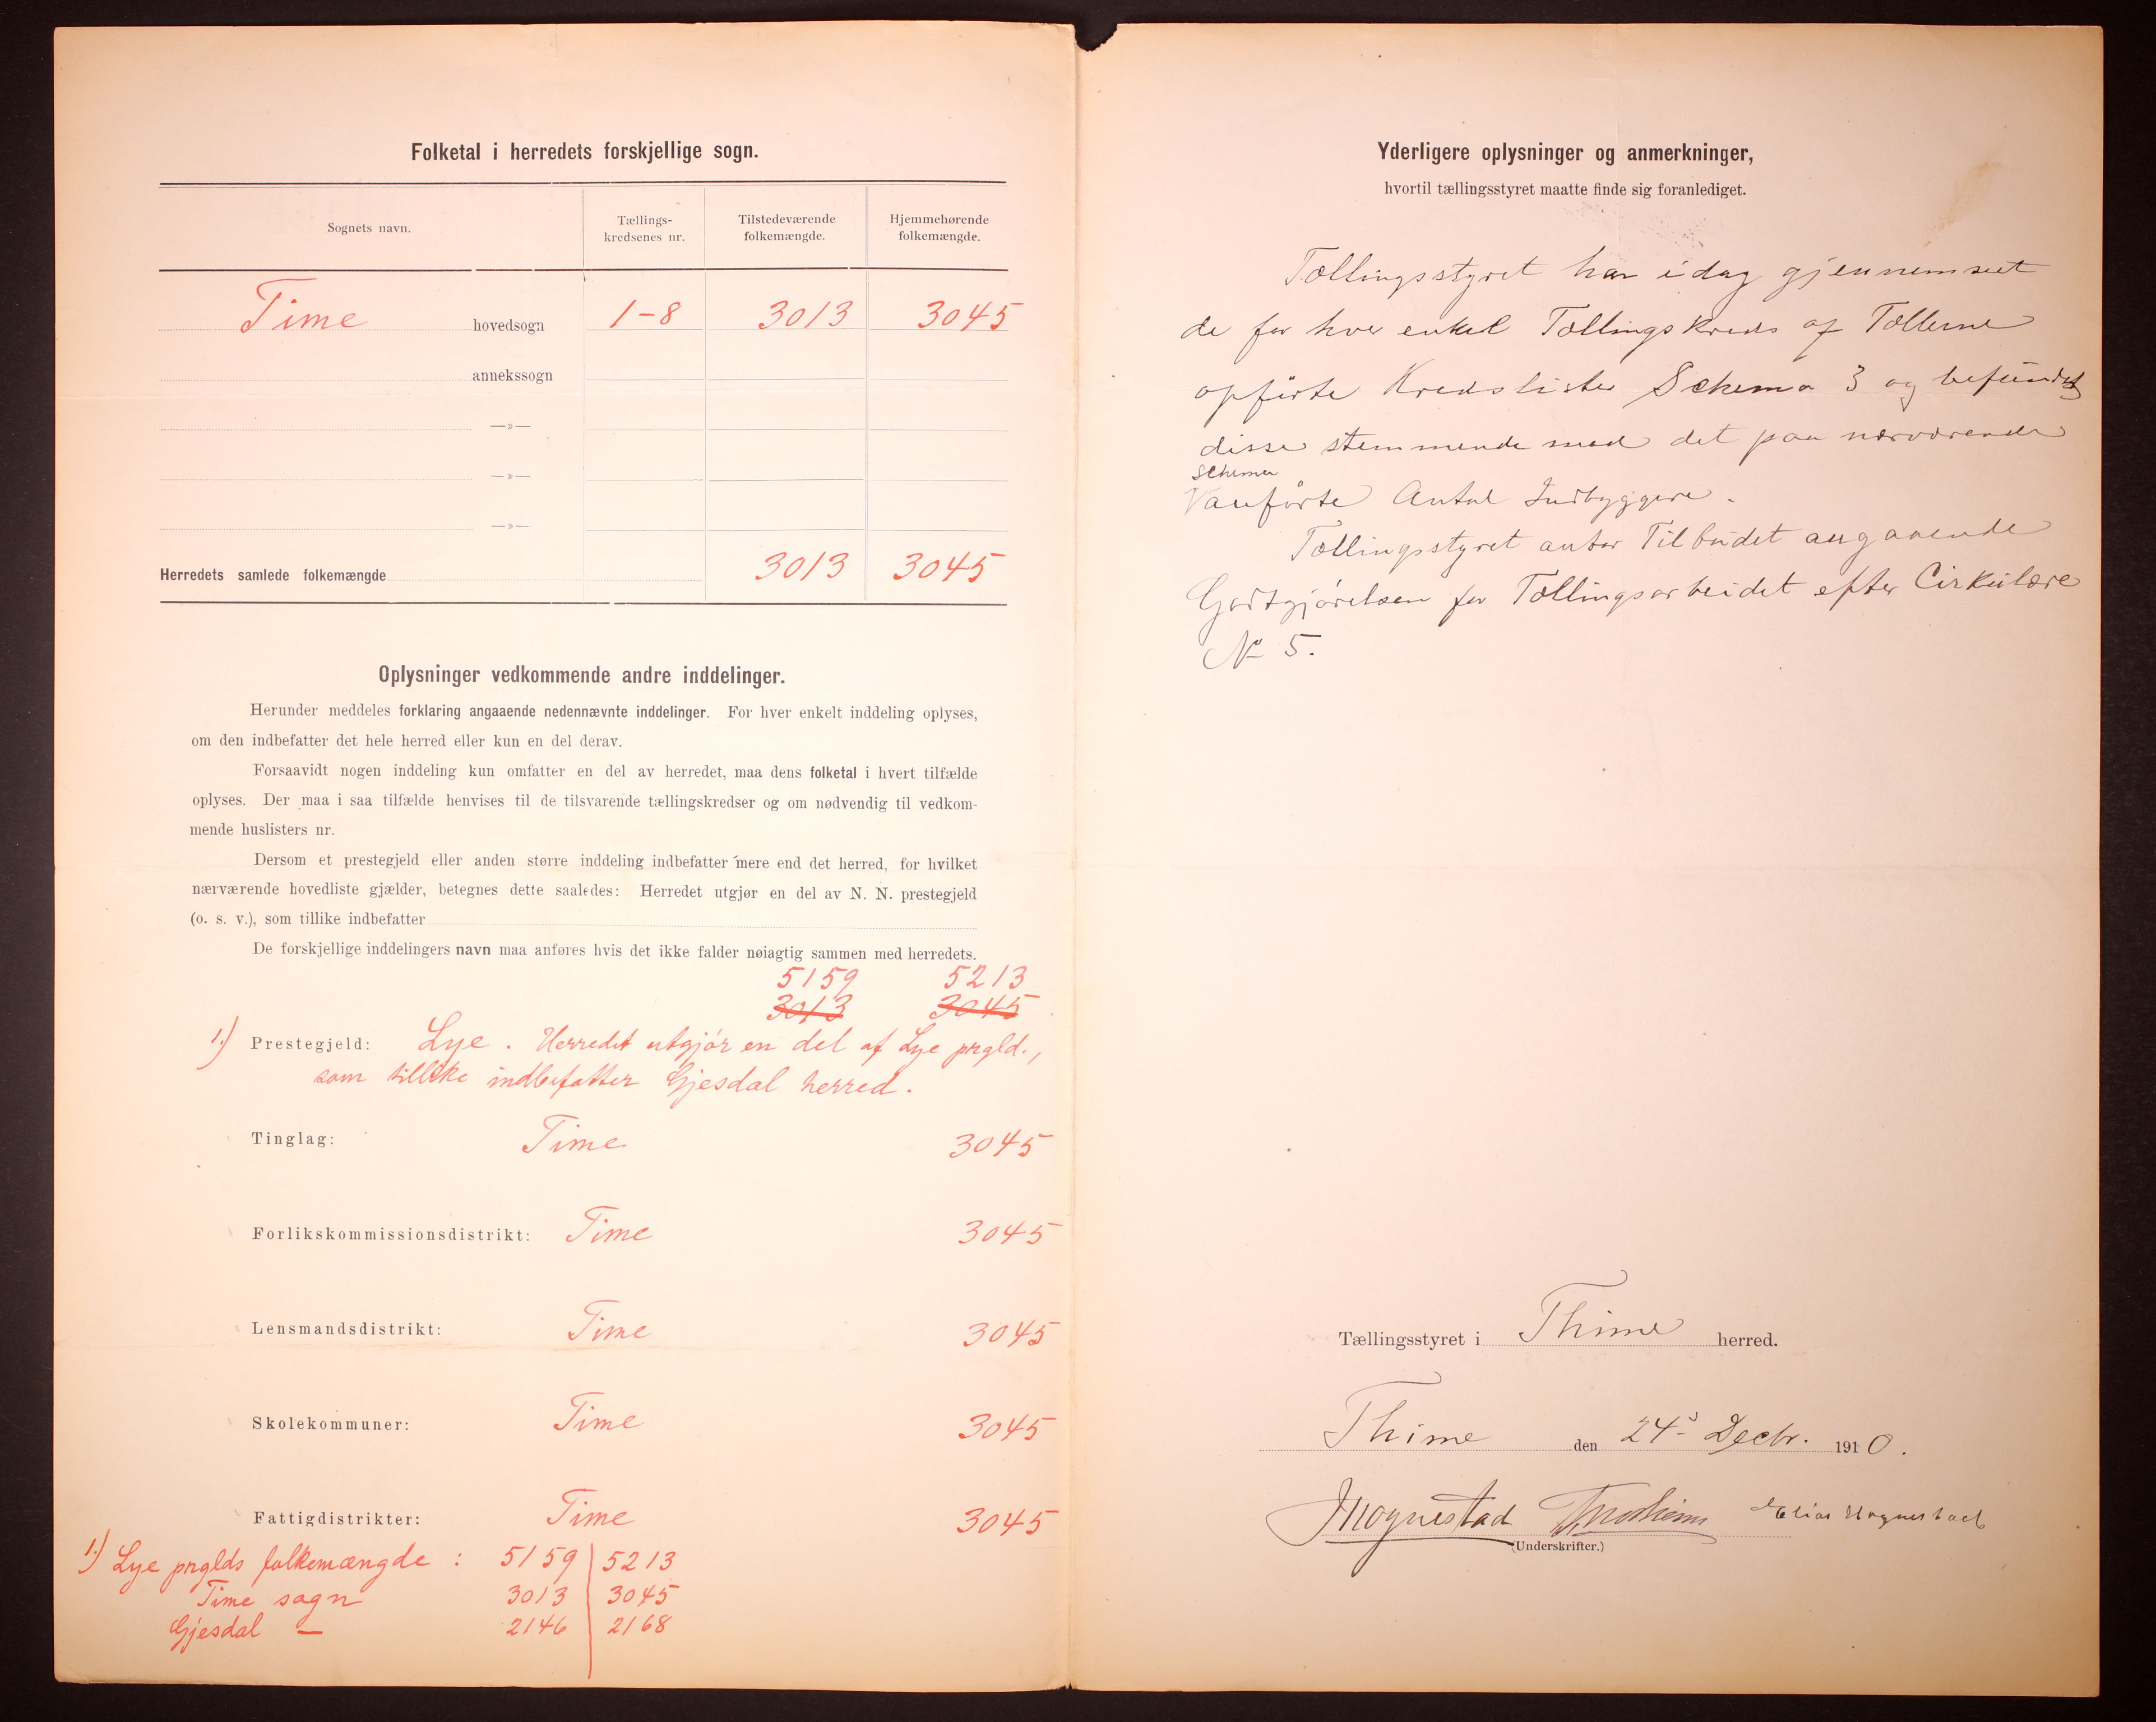 Folketal i herredets forskjellige sogn.
Sognets navn.
Tællings-
kredsenes nr.
Tilstedeværende
folkemængde.
Hjemmehørende
folkemængde.
Time hovedsogn 1-8 3013 3045
annekssogn
—»—
—»—
—»—
Herredets samlede folkemængde 3013 3045
Oplysninger vedkommende andre inddelinger.
Herunder meddeles forklaring angaaende nedennævnte inddelinger. For hver enkelt inddeling oplyses,
om den indbefatter det hele herred eller kun en del derav.
Forsaavidt nogen inddeling kun omfatter en del av herredet, maa dens folketal i hvert tilfælde
oplyses. Der maa i saa tilfælde henvises til de tilsvarende tællingskredser og om nødvendig til vedkom-
mende huslisters nr.
Dersom et prestegjeld eller anden større inddeling indbefatter mere end det herred, for hvilket
nærværende hovedliste gjælder, betegnes dette saaledes: Herredet utgjør en del av N. N. prestegjeld
(o. s. v.), som tillike indbefatter
De forskjellige inddelingers navn maa anføres hvis det ikke falder nøiagtig sammen med herredets.
5159 5213
3013 3045
1.) Prestegjeld: Lye. Herredet utgjör en del af Lye prgld.,
som tillike indbefatter Gjesdal herred.
Tinglag: Time 3045
Forlikskommissionsdistrikt: Time 3045
Lensmandsdistrikt: Time 3045
Skolekommuner: Time 3045
Fattigdistrikter: Time 3045
1.) Lye prglds folkemængde : 5159 5213
Time sogn 3013 3045
Gjesdal — 2146 2168
Yderligere oplysninger og anmerkninger,
hvortil tællingsstyret maatte finde sig foranlediget.
Tællingsstyret har idag gjennemseet
de for hver enkel Tællingskreds af Tællerne
opførte Kredslister Schema 3 og befundet
disse stemmende med det paa nærværende
Schema
anførte Antal Indbyggere.
Tællingsstyret antar Tilbudet angaaende
Godtgjørelsen for Tællingsarbeidet efter Cirkulære
No 5.
Tællingsstyret i Thime herred.
Thime den 24 Decbr. 1910.
Mognestad Elias Hognestad
(Underskrifter.)